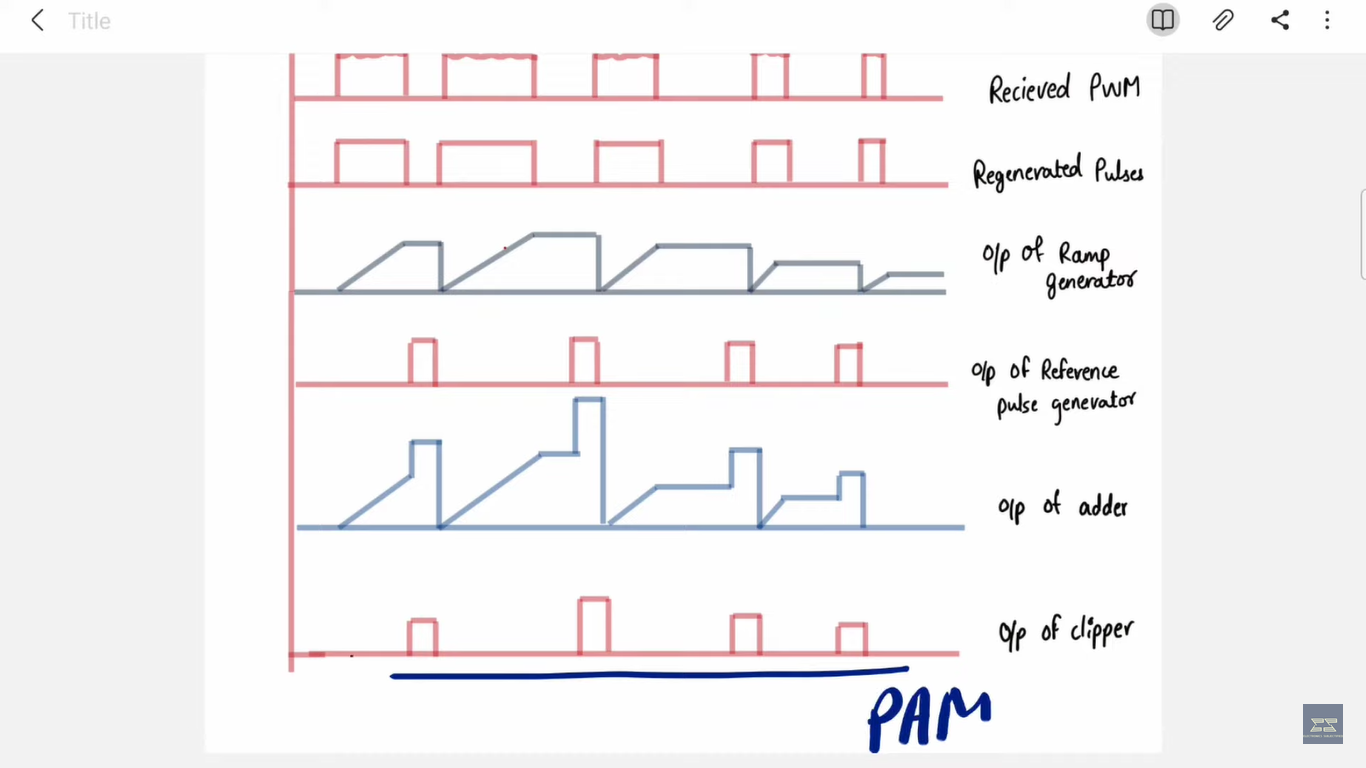 Title
Recieved PWM
Regenerated Pulses
O/p of Ramp
generator
O/p of Reference
pulse generator
O/p of adder
O/p of clipper
PAM